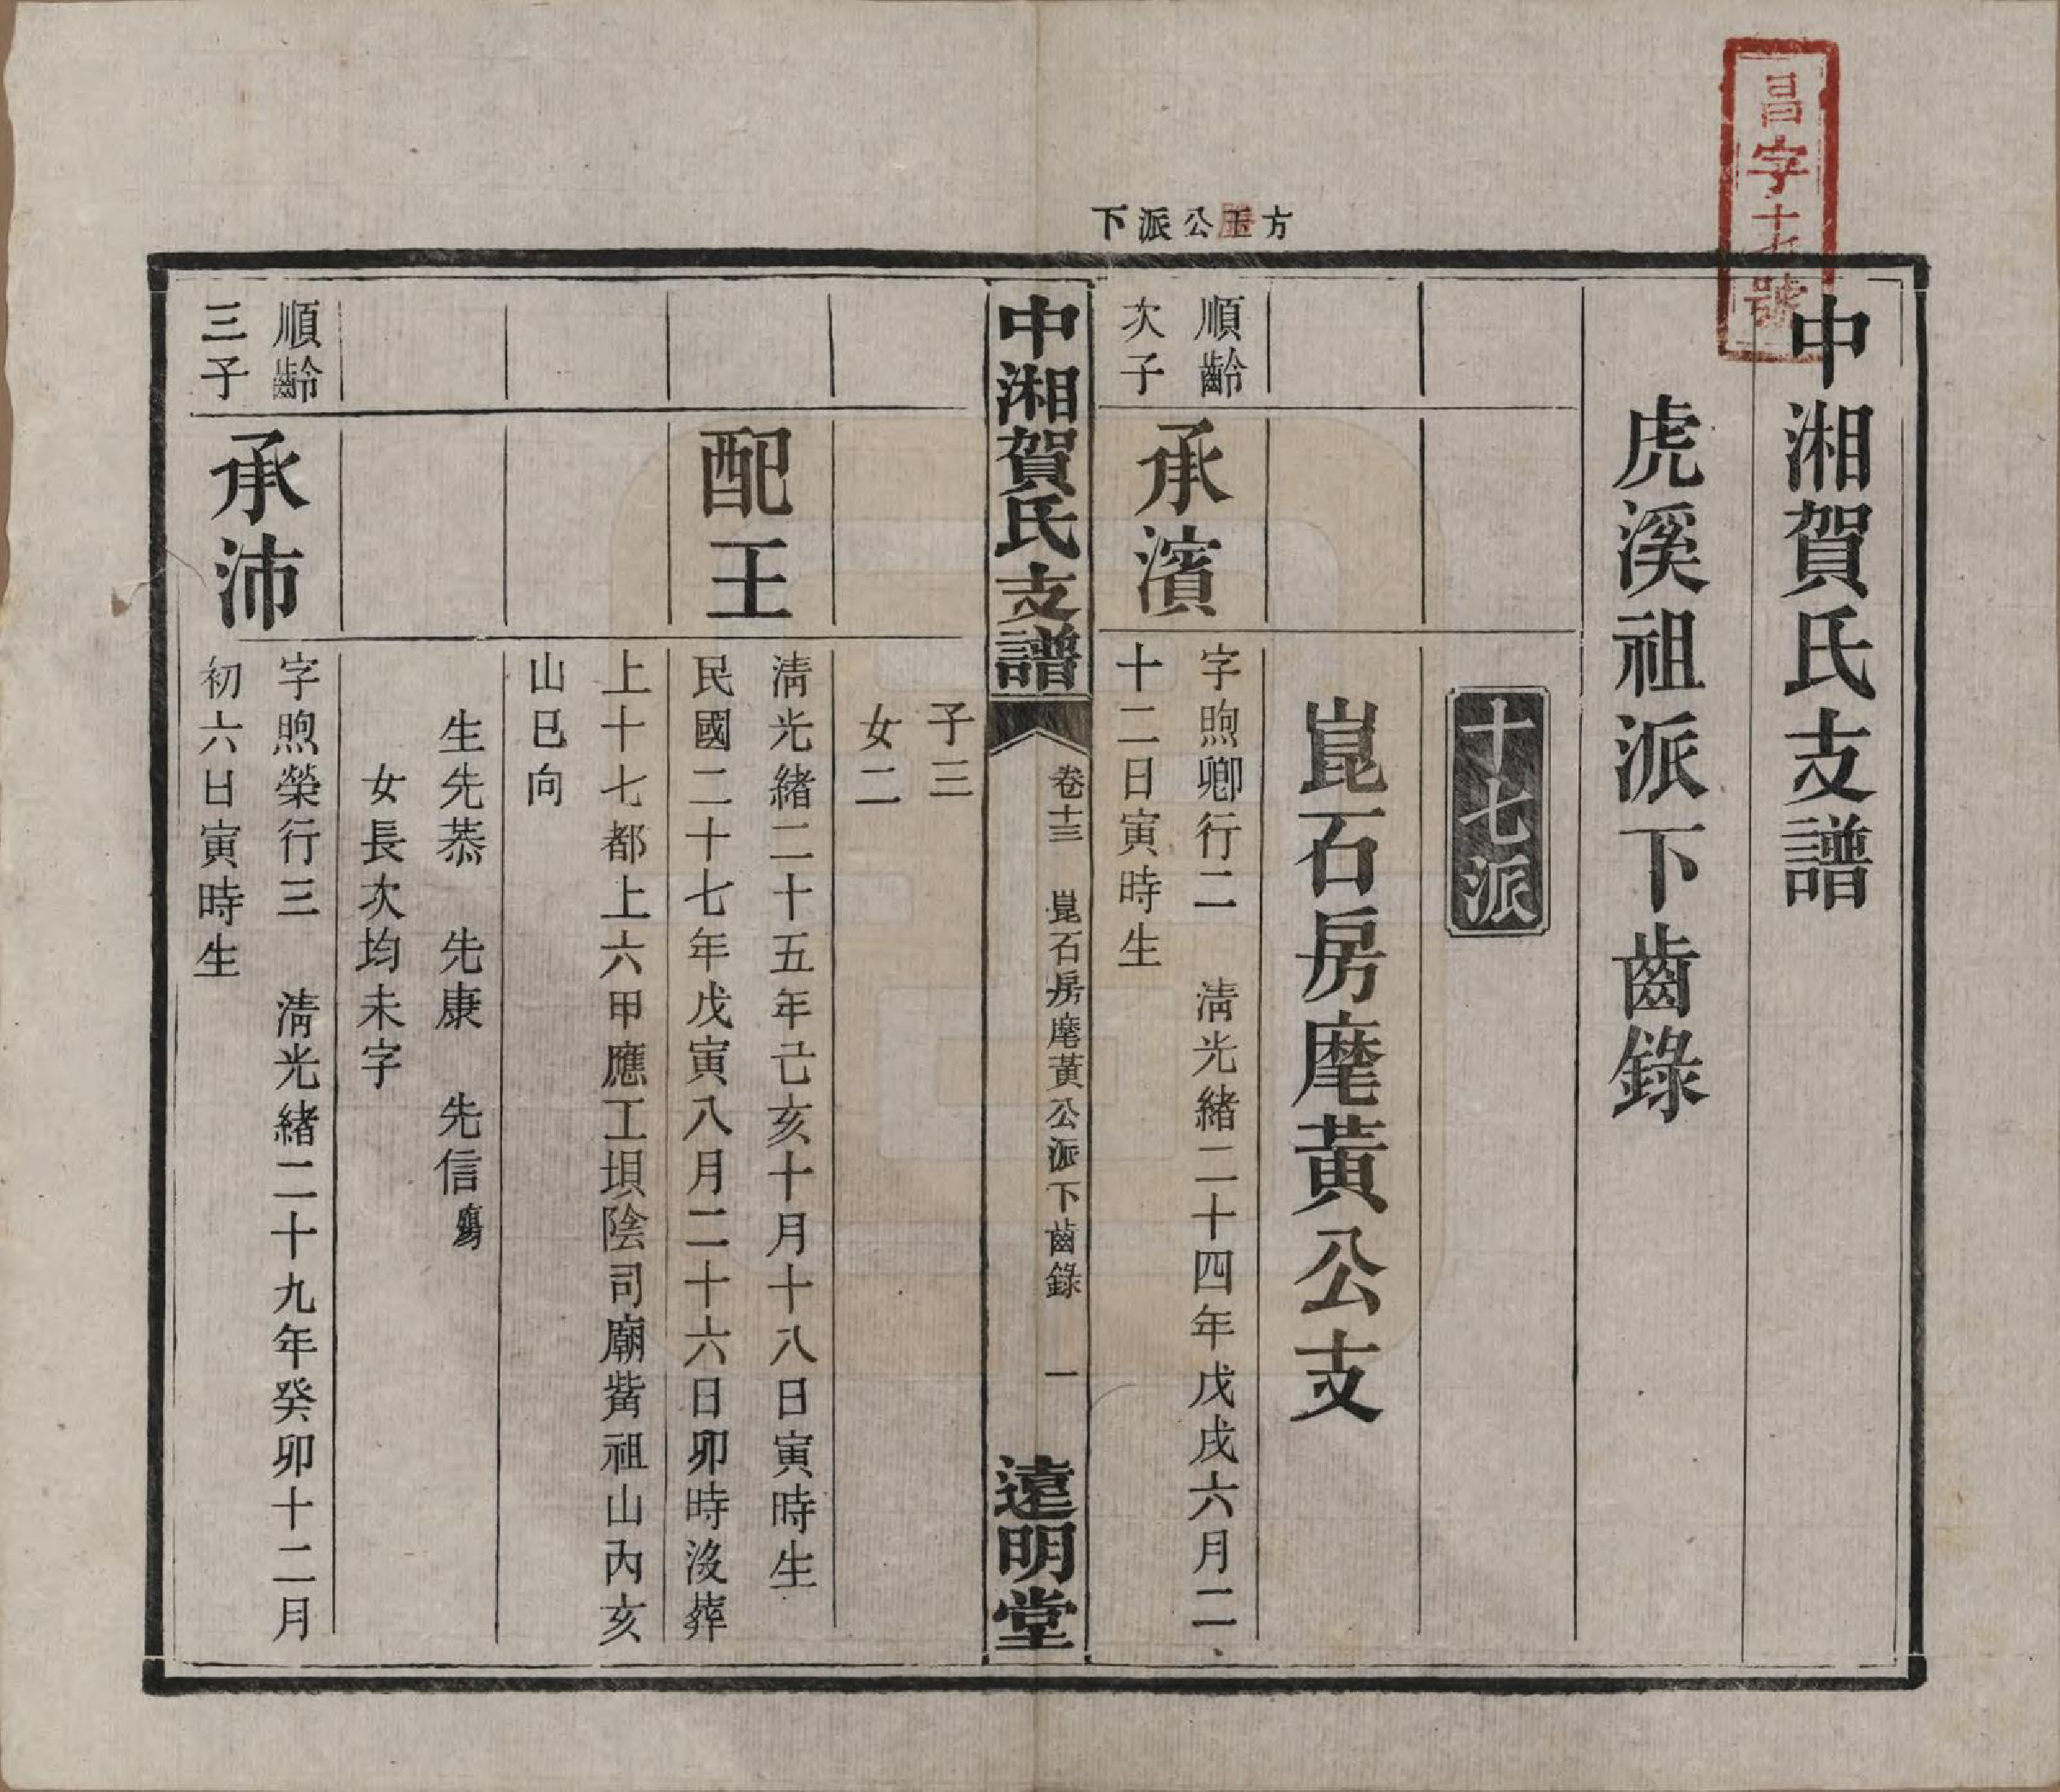 昌字十七號
方玉公派下
中湘賀氏支譜
虎溪祖派下齒錄
十七派
崑石房麾黃公支
順齡
次子
承濱
字煦卿行二　清光緒二十四年戊戌六月二
十二日寅時生
中湘賀氏支譜
卷十三　崑石房麾黃公派下齒錄　一
遠明堂
子三
女二
配王
清光緒二十五年己亥十月十八日寅時生
民國二十七年戊寅八月二十六日卯時沒葬
上十七都上六甲應工垻陰司廟觜祖山內亥
山巳向
生先恭　先康　先信
女長次均未字
順齡
三子
承沛
字煦榮行三　清光緒二十九年癸卯十二月
初六日寅時生